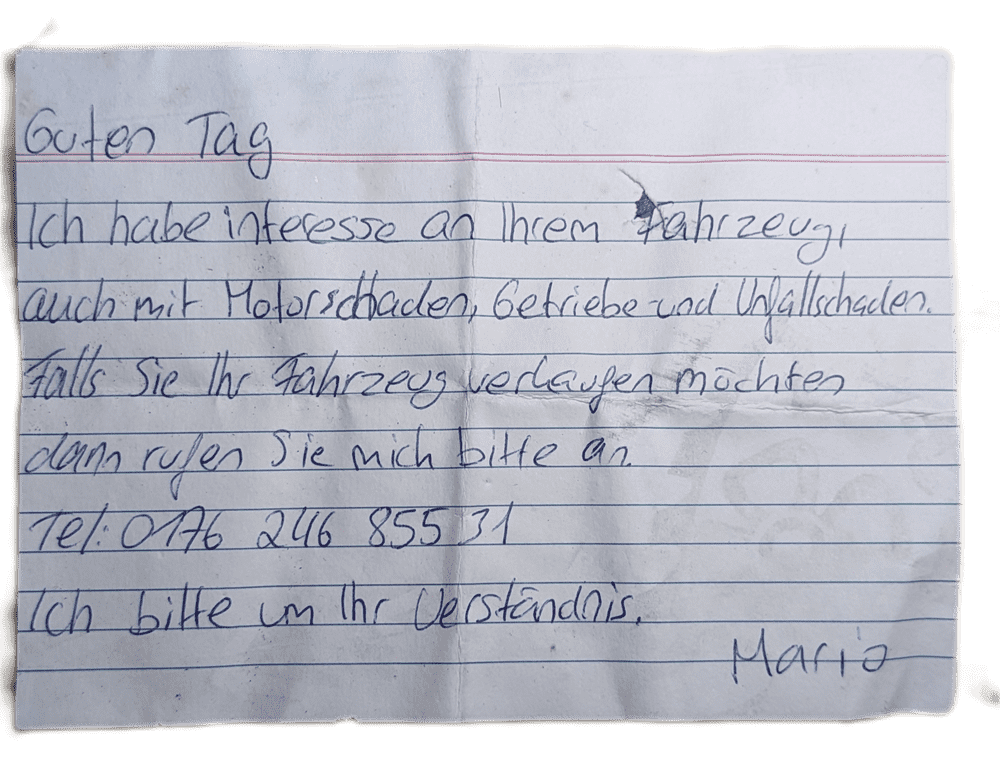 Guten Tag
Ich habe interesse an Ihrem Fahrzeug,
auch mit Motorschaden, Getriebe und Unfallschaden.
Falls Sie Ihr Fahrzeug verkaufen möchten
dann rufen Sie mich bitte an.
Tel: 0176 246 855 31
Ich bitte um Ihr Verständnis.
Mario